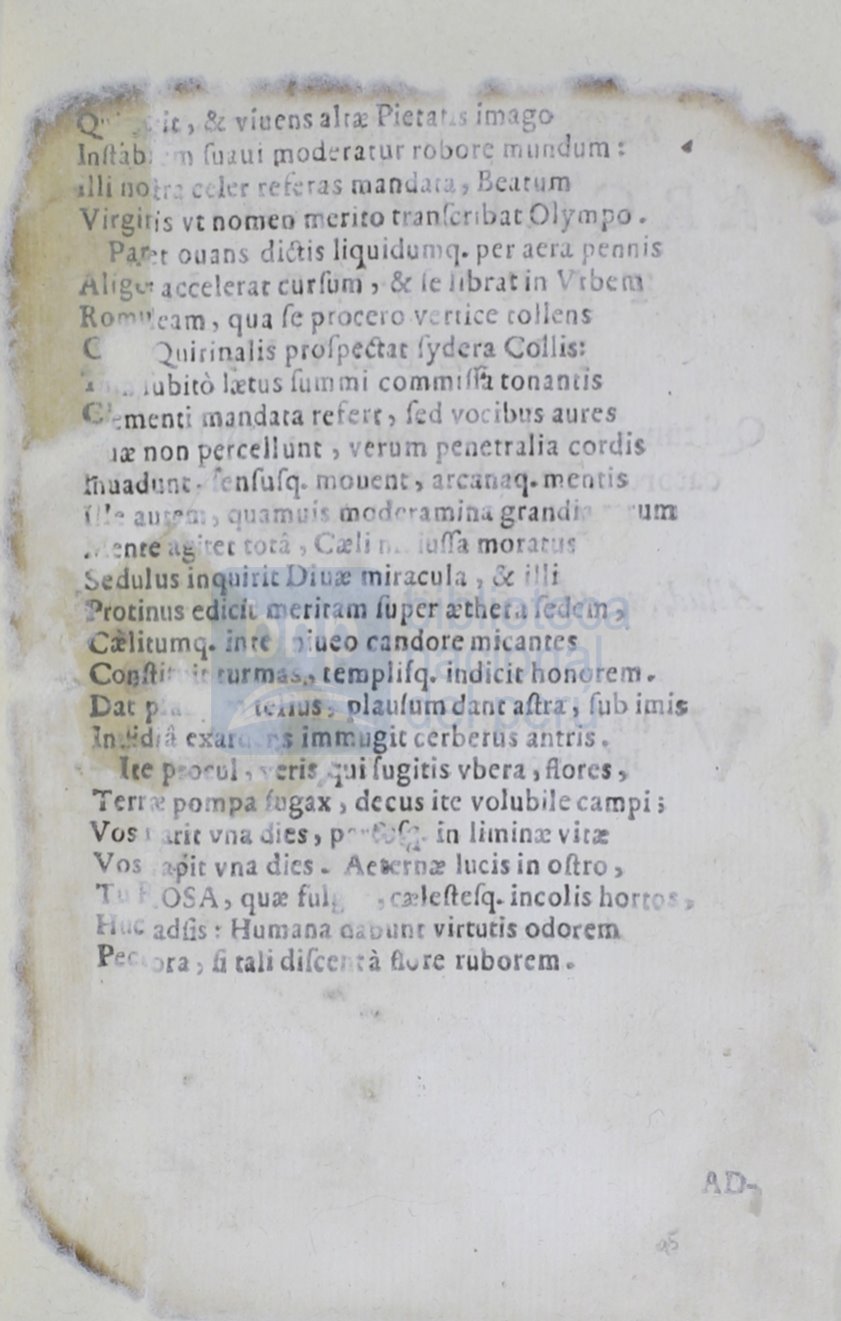 & viuens altæ Pietatis imago
ſuaui moderatur robore mundum:
illi noſtra celer referas mandata, Beatum
Virginis vt nomen merito tranſcribat Olympo.
Paret ouans dictis liquidumq. per aera pennis
Aliger accelerat curſum, & ſe librat in Vrbem
Romuleam, qua ſe procero vertice tollens
Quirinalis proſpectat ſydera Collis:
ſubitò lætus ſummi commiſſa tonantis
Clementi mandata refert, ſed vocibus aures
non percellunt, verum penetralia cordis
Inuadunt ſenſuſq. mouent, arcanaq. mentis
Ille autem, quamuis moderamina grandia
Mente agitet totâ, Cæli iuſſa moratus
Sedulus inquirit Diuæ miracula, & illi
Protinus edicit meritam ſuper æthera ſedem,
Cælitumq. inter niueo candore micantes
Conſtituit turmas, templiſq. indicit honorem.
Dat plauſum dant aſtra, ſub imis
Inſidiâ immugit cerberus antris.
Ite procul, veris qui fugitis vbera, flores,
Terræ pompa fugax, decus ite volubile campi;
Vos parit vna dies, in liminæ vitæ
Vos rapit vna dies. Aeternæ lucis in oſtro,
Tu ROSA, quæ cæleſteſq. incolis hortos,
Huc adſis: Humana dabunt virtutis odorem
Pectora, ſi tali diſcent à flore ruborem.
biblioteca
nacional
del perú
AD-
95